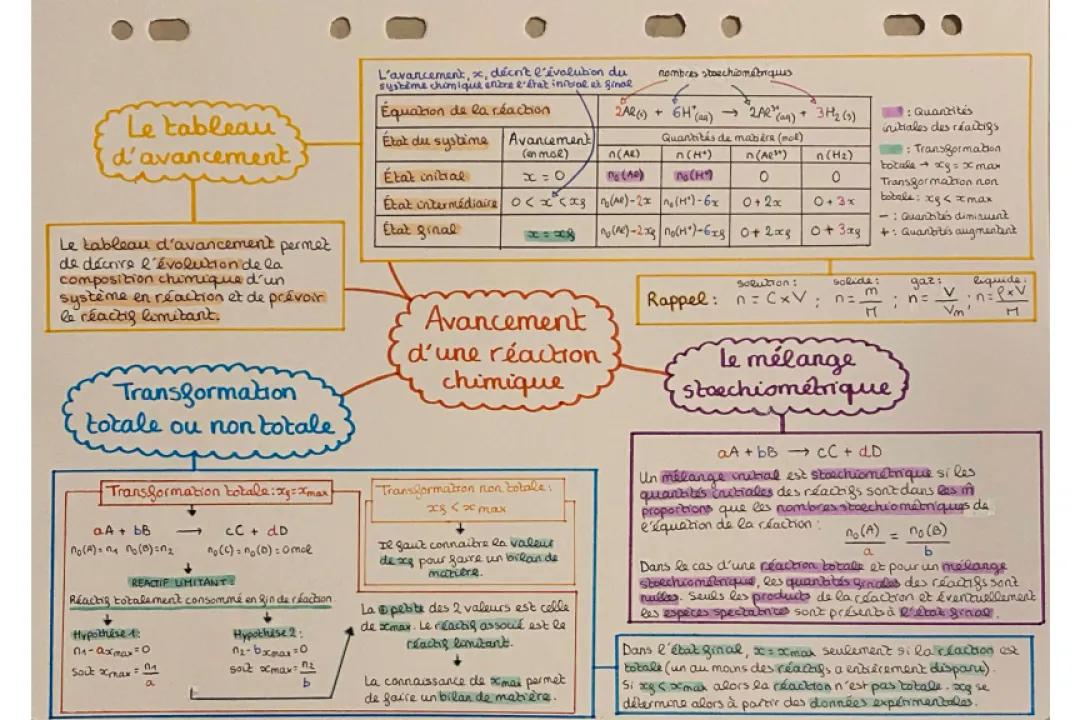 Le tableau
d'avancement
Le tableau d'avancement permet
de décrire l'évolution de la
composition chimique d'un
système en réaction et de prévoir
le réactif limitant.
L'avancement, x, décrit l'évolution du
système chimique entre l'état initial et final
nombres stoechiométriques
Équation de la réaction 2Al(s) + 6H⁺(aq) → 2Al³⁺(aq) + 3H₂(s)
État du système Avancement Quantités de matière (mol)
(en mol) n(Al) n(H⁺) n(Al³⁺) n(H₂)
État initial x = 0 n₀(Al) n₀(H⁺) 0 0
État intermédiaire 0 < x < xf n₀(Al)-2x n₀(H⁺)-6x 0+2x 0+3x
État final x = xf n₀(Al)-2xf n₀(H⁺)-6xf 0+2xf 0+3xf
: Quantités
initiales des réactifs
: Transformation
totale → xf = x max
Transformation non
totale: xf < x max
- : Quantités diminuent
+ : Quantités augmentent
Rappel : solution : n = C×V ; solide : n = m/M ; gaz : n = V/Vm ; liquide : n = ρ×V/M
Avancement
d'une réaction
chimique
Transformation
totale ou non totale
Transformation totale : xf = xmax
aA + bB → cC + dD
n₀(A) = n₁ n₀(B) = n₂ n₀(C) = n₀(D) = 0 mol
REACTIF LIMITANT :
Réactif totalement consommé en fin de réaction
Hypothèse 1 :
n₁ - axmax = 0
Soit xmax = n₁/a
Hypothèse 2 :
n₂ - bxmax = 0
soit xmax = n₂/b
Transformation non totale :
xf < x max
Il faut connaître la valeur
de xf pour faire un bilan de
matière.
La + petite des 2 valeurs est celle
de xmax. Le réactif associé est le
réactif limitant.
La connaissance de xmax permet
de faire un bilan de matière.
Le mélange
stoechiométrique
aA + bB → cC + dD
Un mélange initial est stoechiométrique si les
quantités initiales des réactifs sont dans les m̂
proportions que les nombres stoechiométriques de
l'équation de la réaction :
n₀(A)/a = n₀(B)/b
Dans le cas d'une réaction totale et pour un mélange
stoechiométrique, les quantités finales des réactifs sont
nulles. Seuls les produits de la réaction et éventuellement
les espèces spectatrices sont présents à l'état final.
Dans l'état final, x = xmax seulement si la réaction est
totale (un au moins des réactifs a entièrement disparu).
Si xf < xmax alors la réaction n'est pas totale. xf se
détermine alors à partir des données expérimentales.